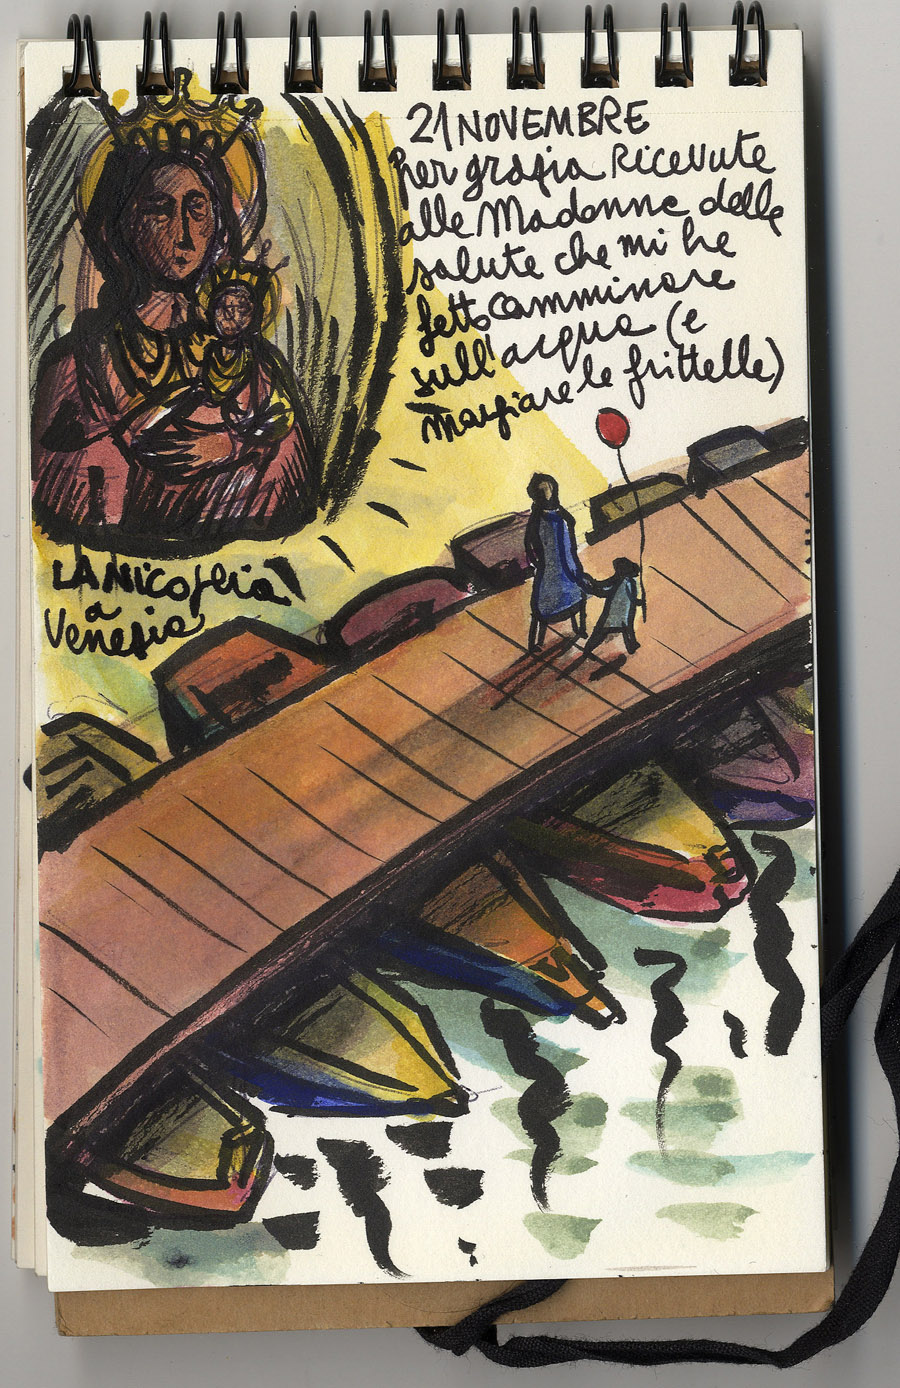 21 NOVEMBRE
Per grazia Ricevuta
alla Madonna della
salute che mi ha
fatto camminare
sull'acqua (e
mangiare le frittelle)
LA Nicoglia
a
Venezia